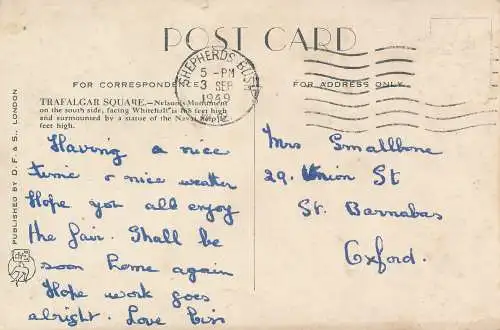 POST CARD
FOR CORRESPONDENCE
FOR ADDRESS ONLY
SHEPHERDS BUSH
5 - PM
3 SEP
1949
TRAFALGAR SQUARE.—Nelson's Monument
on the south side, facing Whitehall is 168 feet high
and surmounted by a statue of the Naval
feet high.
PUBLISHED BY D. F. & S., LONDON
Having a nice
time & nice weather
Hope you all enjoy
the fair. Shall be
soon home again
Hope work goes
alright. Love
Mrs Smallbone
29. Union St
St. Barnabas
Oxford.